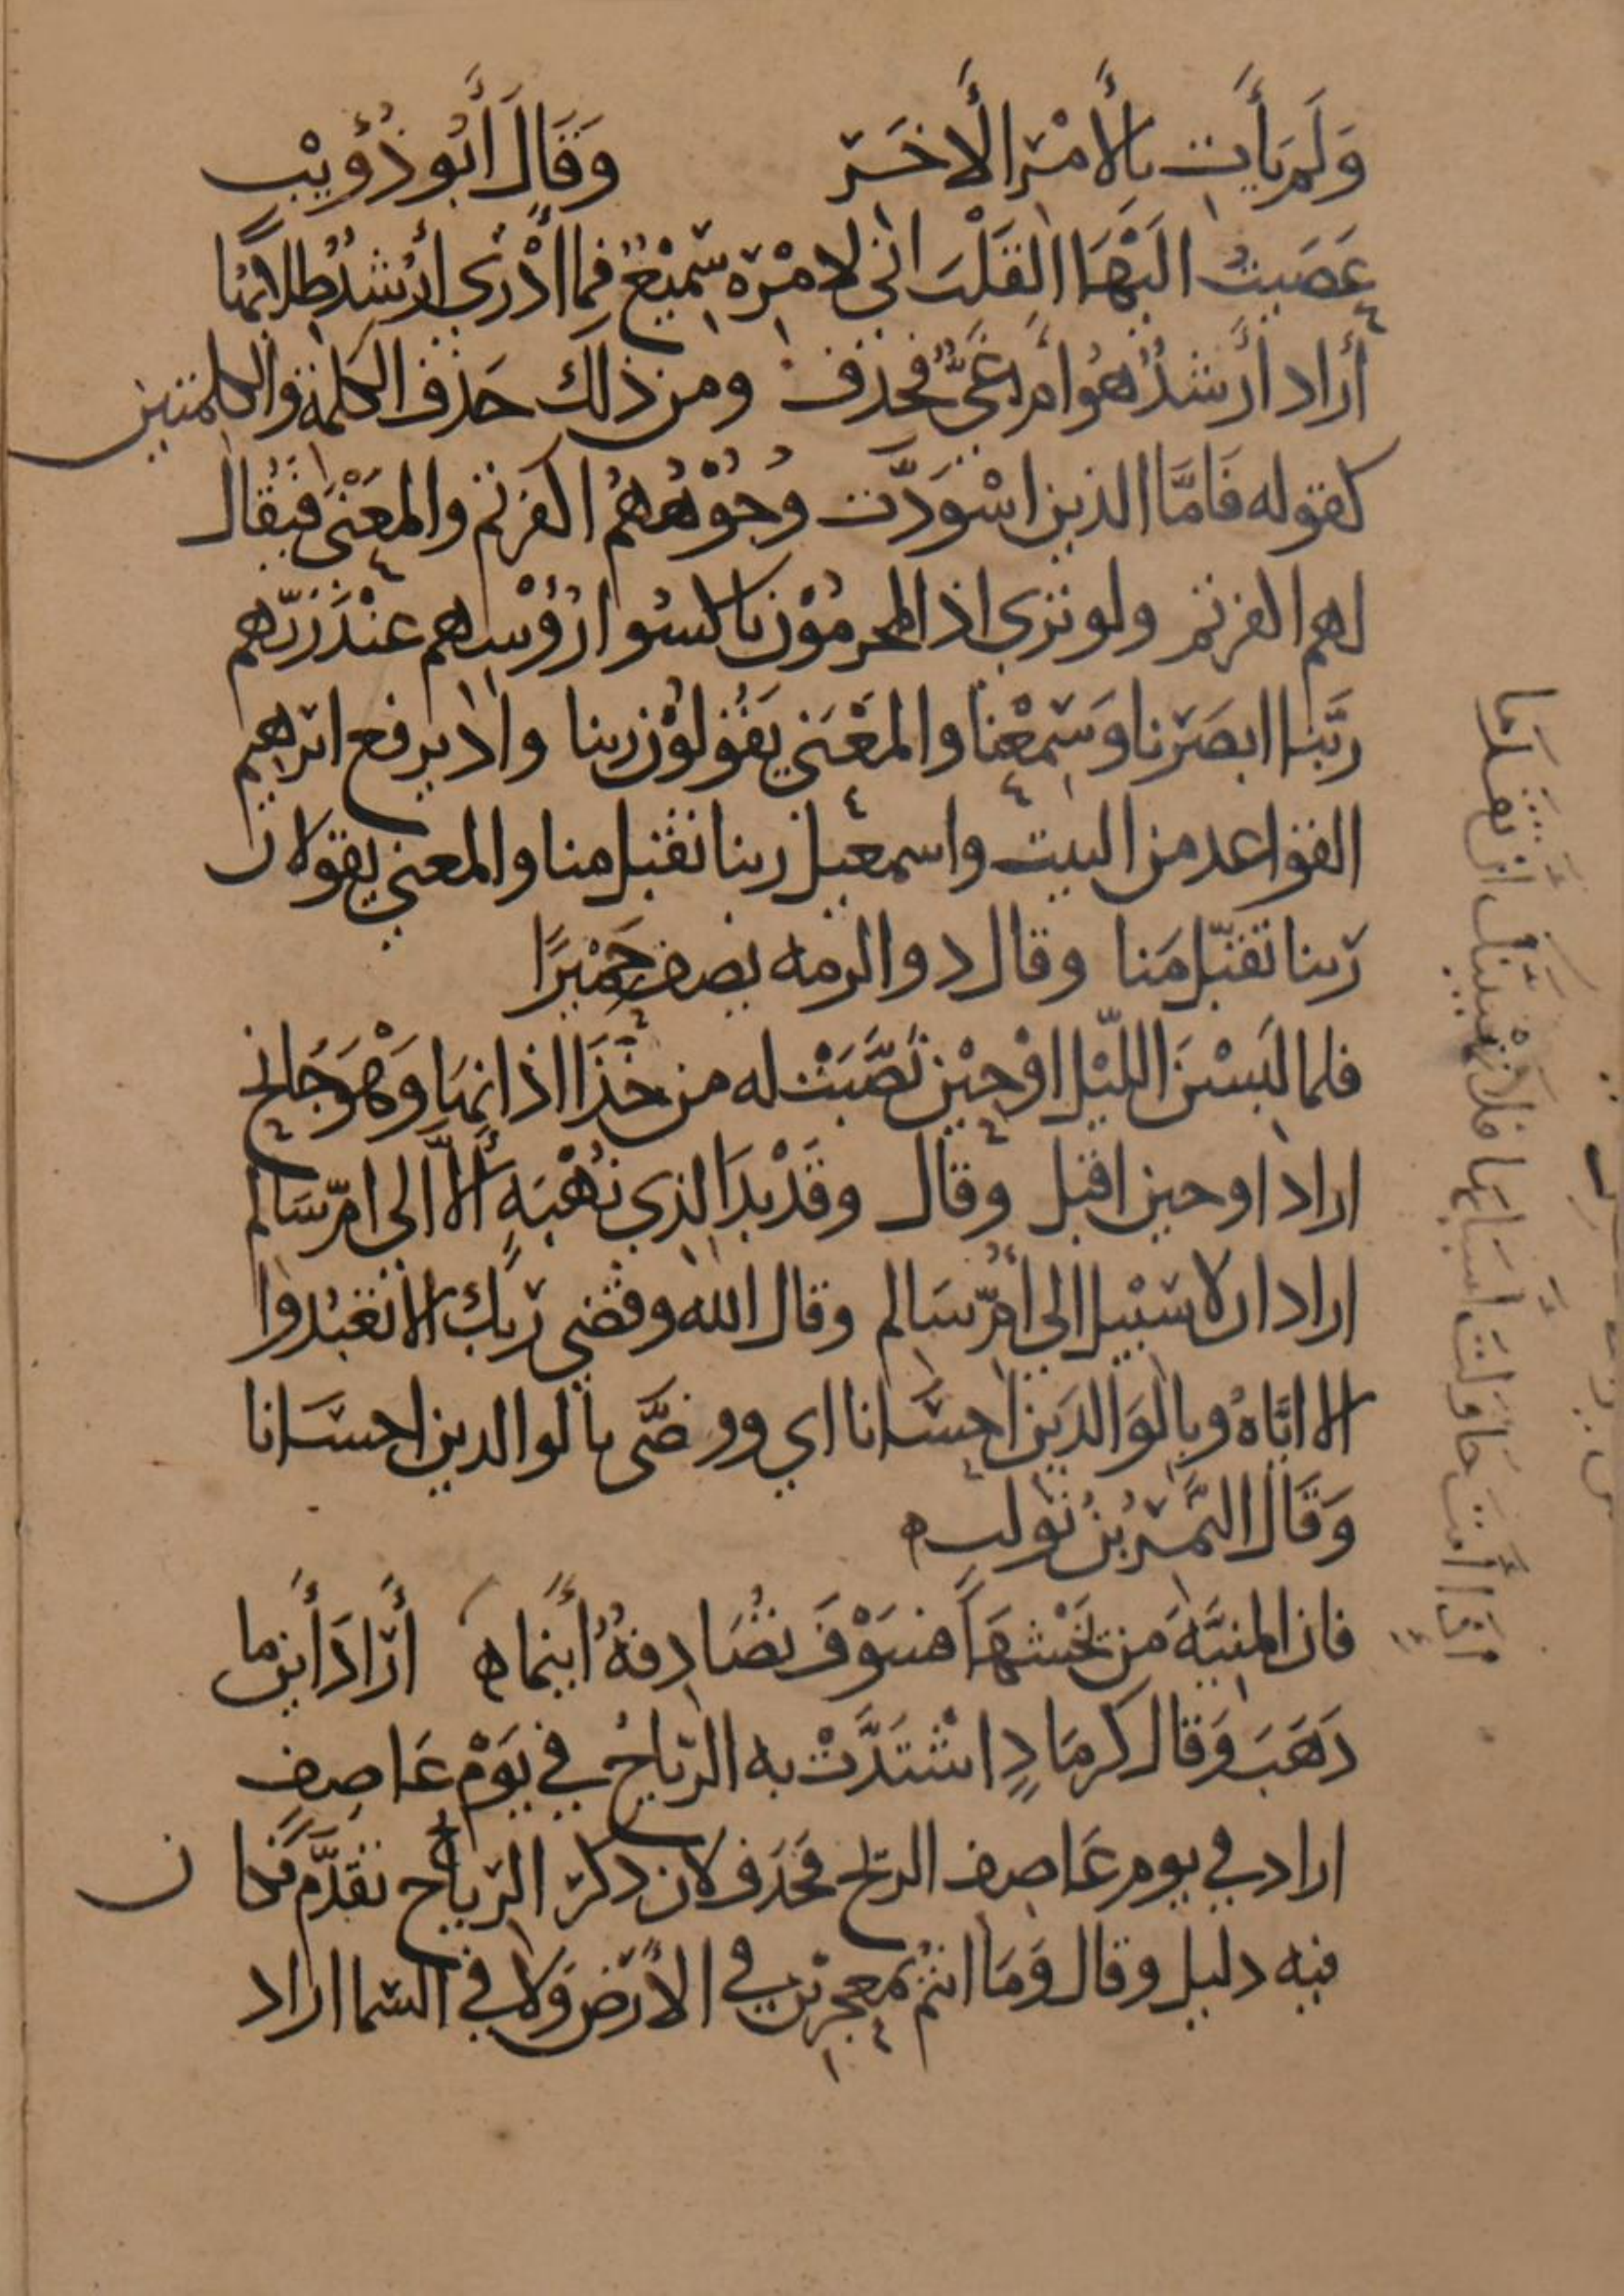 وَلَم يَأتِ بِالأَمْرِ الأَخَر وَقَالَ أَبُو ذُؤَيْب
عَصَيتُ اليَهَا القَلْبَ اني لامْرِه سَمِيْعٌ فما أَدْرَي أَرُشدٌ طلابُهَا
أَراد أَرُشدٌ هُوَ أم غَيٌّ فحُذف ومن ذلك حَذف الكلمة والكلمتين
كقوله فَامَّا الذين اسْوَدَّت وُجُوْهُهُم اكفرتم والمعنَى فيُقال
لهم اكفرتم ولو تري اذ المجرمُوْن ناكسُوا رُؤْسِهم عنْدَ رَبّهم
رَبَّنا ابصَرنا وَسَمِعْنا والمَعْنَي يَقُولُوْن ربنا واذ يرفع ابرهيم
القواعد من البيت واسمعيل ربنا تقبل منا والمعني يقولان
رَبنا تقبّل مَنا وقال ذو الرمه يصف حَمِيْرًا
فلما لَبسْنَ اللّيْل اوْ حِيْن نَصَّبَتْ له من خَذَا اذانِهَا وَهْوَ جَانح
اراد او حين اقبل وقال وقَدْ بدَا لِذِي نُهْيَهٍ أَلاَّ الي امّ سَالم
اراد ان لا سَبيْل الى أُمّ سَالم وقال الله وقضي رَبك الا تعبُدوا
الا ايَّاهُ وبالوَالدَين احسَانا اي ووصَّى بالوالدين احسَانا
وَقَالَ النَّمْر بْنُ تَوْلب ه
فان المنيَّةَ مَن يَخْشَهَا فَسَوْفَ تُصَادِفهُ أَيْنَمَا ه أَرَادَ أَيْن ما
ذَهَبَ وَقال كرمَادٍ اشْتَدَّتْ به الرّيَاحُ في يَوْم عَاصِفٍ
اراد في يوم عَاصِف الريح فحَذف لان ذكر الريَاح تقدَّم فكان
فيه دليل وقال وَمَا انتُم بمعجزين في الأرَض وَلا في السَما اراد